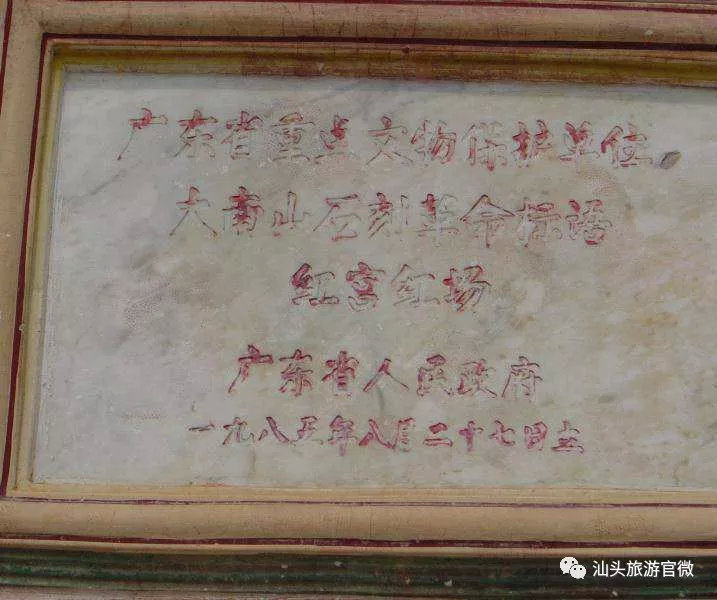 广东省重点文物保护单位
大南山石刻革命标语
红宫红场
广东省人民政府
一九八五年八月二十七日立
汕头旅游官微